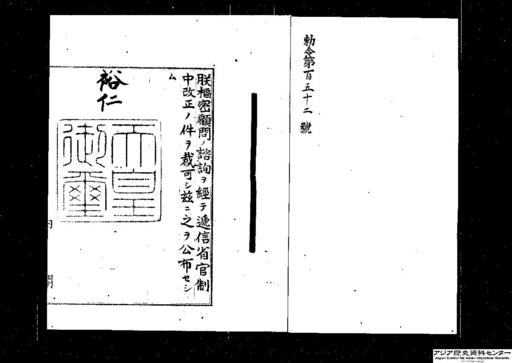 勅令第百五十二號
朕樞密顧問ノ諮詢ヲ經テ遞信省官制
中改正ノ件ヲ裁可シ茲ニ之ヲ公布セシ
ム
裕仁
天皇
御璽
アジア歴史資料センター
Japan Center for Asian Historical Records